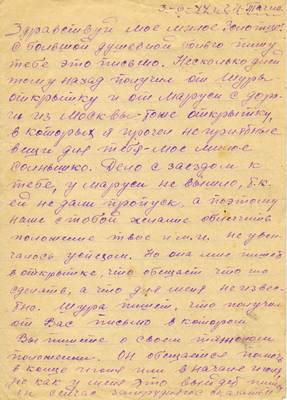 3-6-44 г. Н. Тагил.
Здравствуй мое милое Золотце!
С большой душевной болью пишу
тебе это письмо. Несколько дней
тому назад получил от Шуры
открытку и от Маруси с доро-
ги из Москвы тоже открытку,
в которых я прочел неприятные
вещи для тебя мое милое
солнышко. Дело с заездом к
тебе, у Маруси не вышло, т.к.
ей не дали пропуск, а поэтому
наше с тобой желание облегчить
положение твое и м.м. не увен-
чалось успехом. Но она мне пишет
в открытке, что обещает что то
сделать, а что для меня неизвес-
тно. Шура пишет, что получил
от Вас письмо в котором
Вы пишете о своем тяжелом
положении. Он обещается
в конце июня или в начале июля,
но как у меня это выйдет
сейчас затрудняюсь сказать